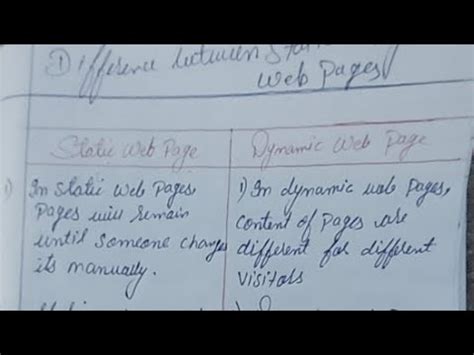 ① Difference between Stat
Web Pages
Static Web Page
Dynamic Web Page
1) In static Web Pages,
Pages will remain
until someone changes
its manually.
1) In dynamic web pages,
content of Pages are
different for different
visitors